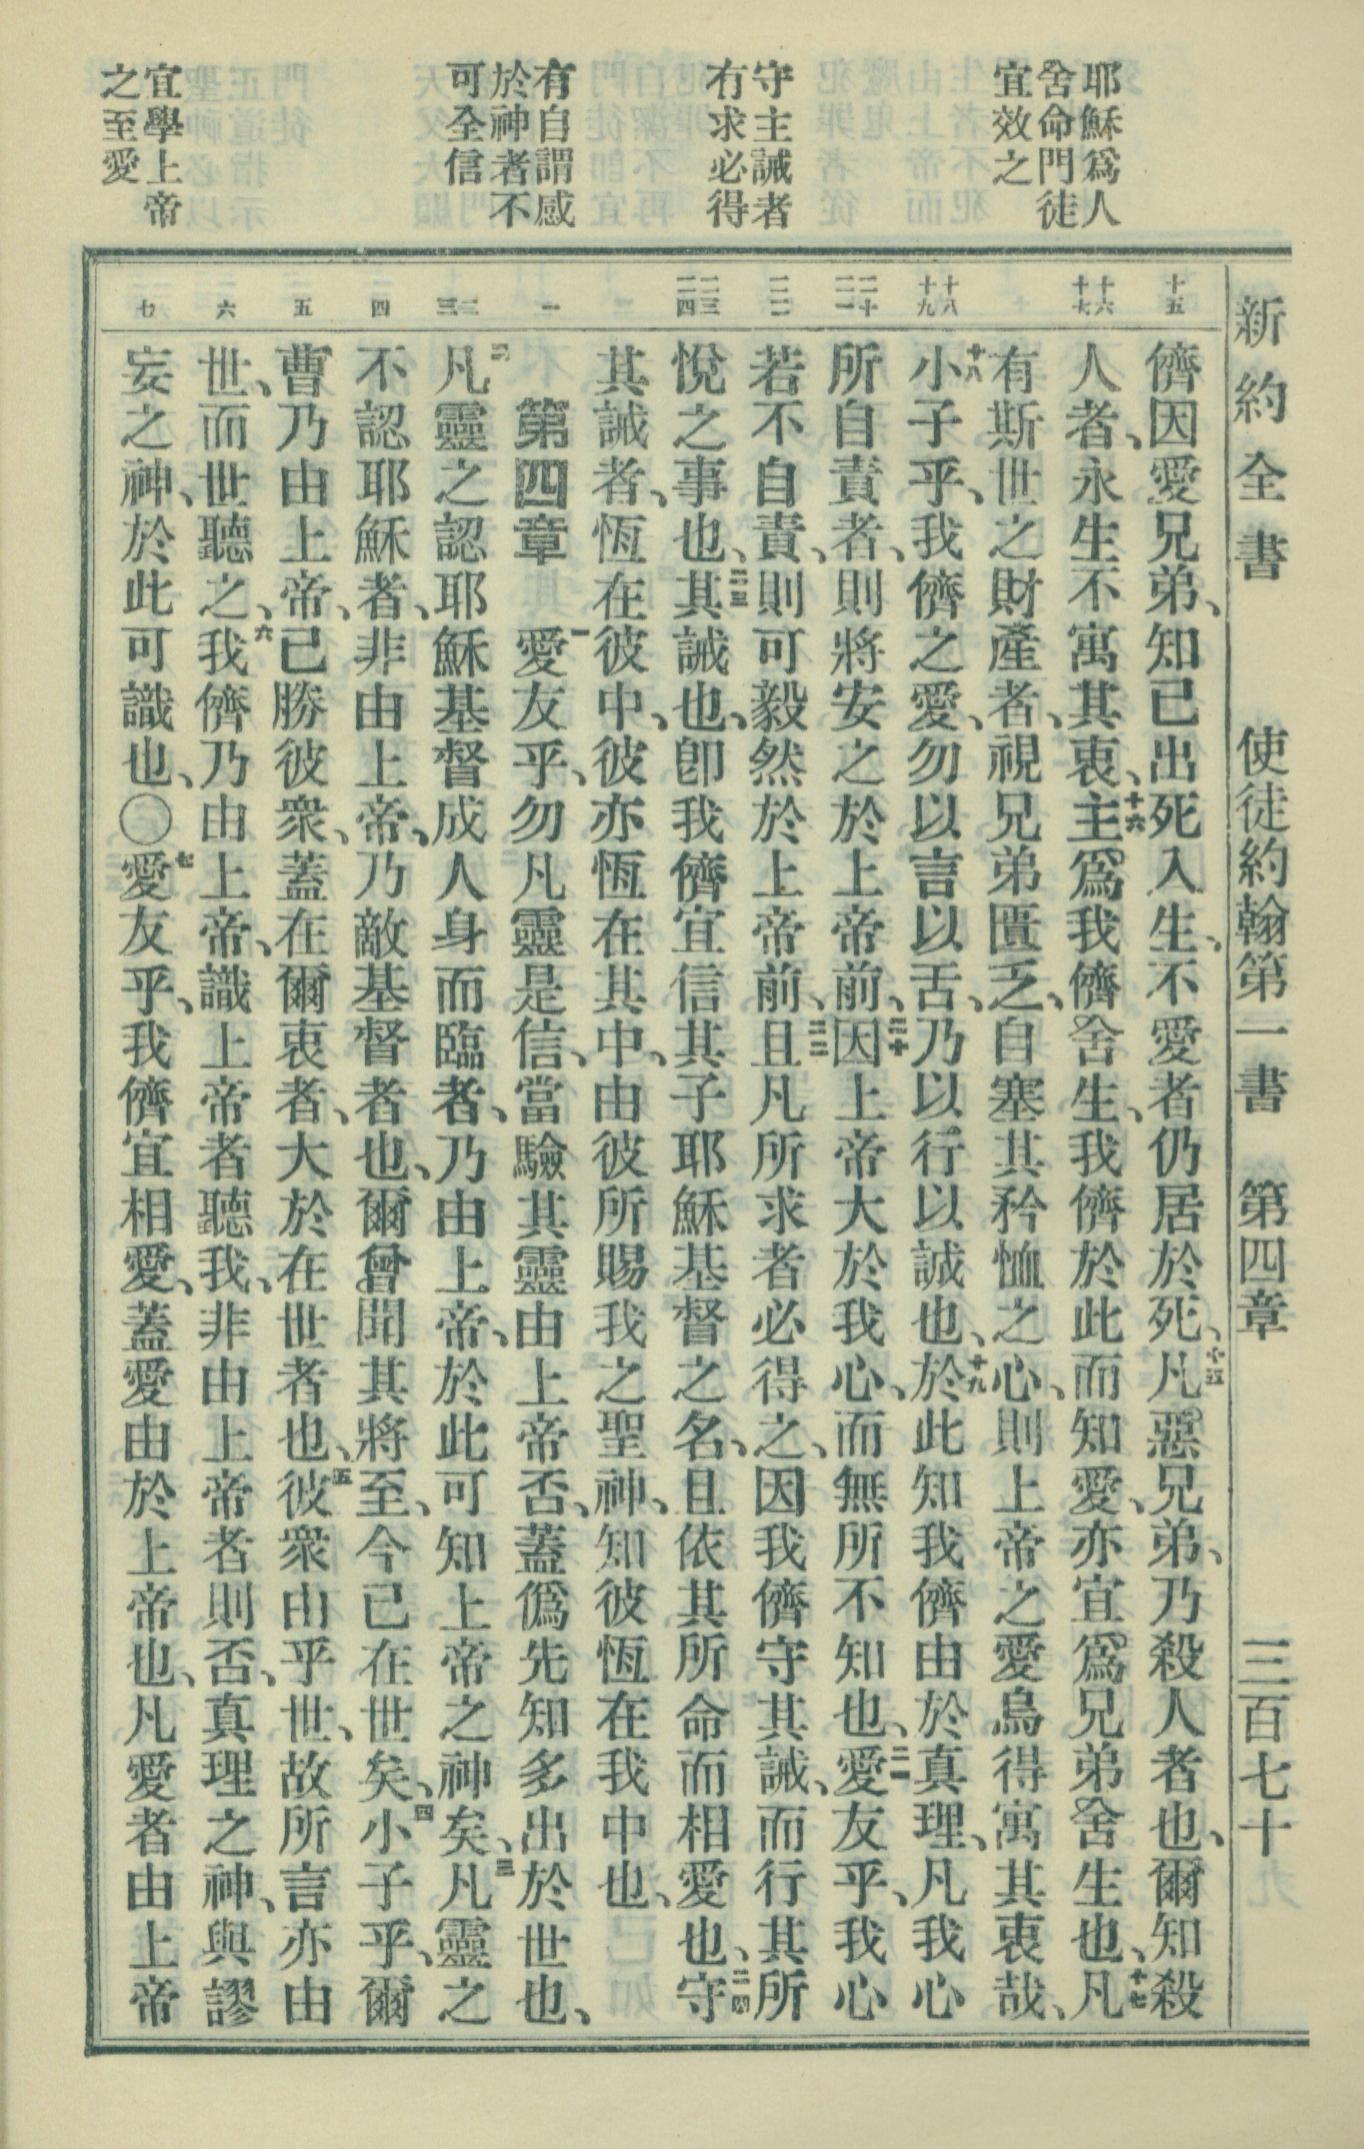 耶穌爲人
舍命門徒
宜效之
守主誡者
有求必得
有自謂感
於神者不
可全信
宜學上帝
之至愛
新約全書　使徒約翰第一書　第四章　三百七十
十五
十六
十七
十八
十九
二十
二一
二二
二三
二四
一
二
三
四
五
六
七
儕因愛兄弟、知已出死入生、不愛者仍居於死、十五凡惡兄弟、乃殺人者也、爾知殺
人者、永生不寓其衷、十六主爲我儕舍生、我儕於此而知愛、亦宜爲兄弟舍生也、十七凡
有斯世之財產者、視兄弟匱乏、自塞其矜恤之心、則上帝之愛烏得寓其衷哉、
十八小子乎、我儕之愛、勿以言以舌、乃以行以誠也、十九於此知我儕由於真理、凡我心
所自責者、則將安之於上帝前、二十因上帝大於我心、而無所不知也、二一愛友乎、我心
若不自責、則可毅然於上帝前、二二且凡所求者必得之、因我儕守其誡、而行其所
悅之事也、二三其誡也、卽我儕宜信其子耶穌基督之名、且依其所命而相愛也、二四守
其誡者、恆在彼中、彼亦恆在其中、由彼所賜我之聖神、知彼恆在我中也、
第四章　一愛友乎、勿凡靈是信、當驗其靈由上帝否、蓋僞先知多出於世也、
二凡靈之認耶穌基督成人身而臨者、乃由上帝、於此可知上帝之神矣、三凡靈之
不認耶穌者、非由上帝、乃敵基督者也、爾曾聞其將至、今已在世矣、四小子乎、爾
曹乃由上帝、已勝彼衆、蓋在爾衷者、大於在世者也、五彼衆由乎世、故所言亦由
世、而世聽之、六我儕乃由上帝、識上帝者聽我、非由上帝者則否、真理之神、與謬
妄之神、於此可識也、〇七愛友乎、我儕宜相愛、蓋愛由於上帝也、凡愛者由上帝